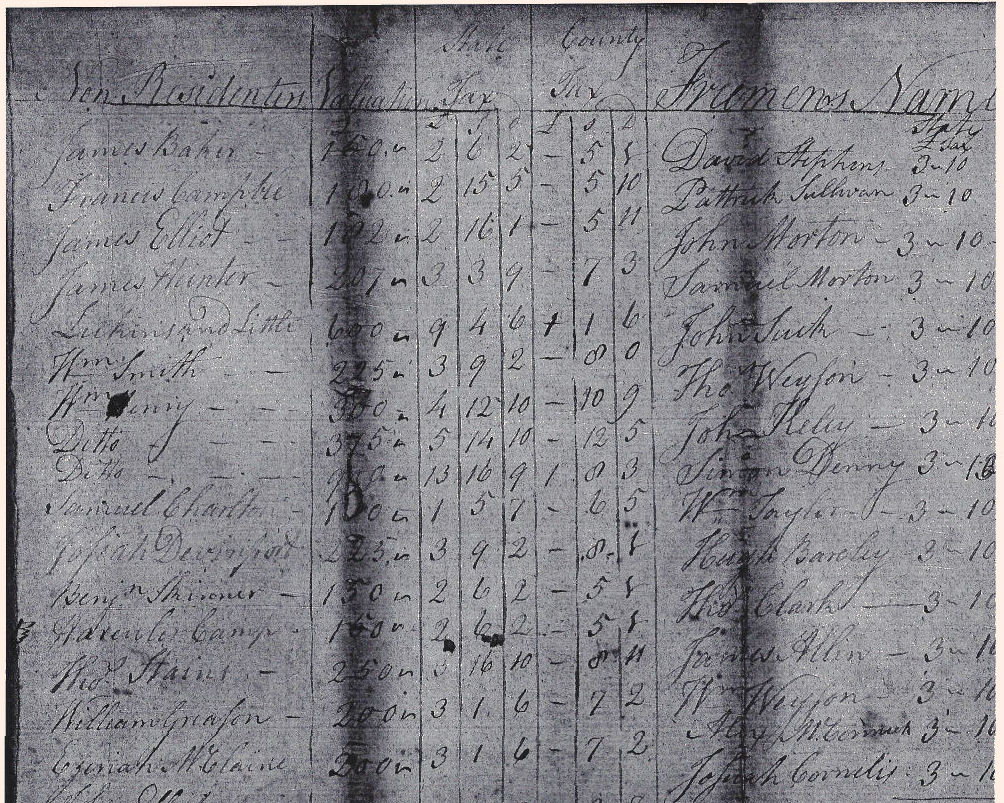 State County
Non Residenters Valuation Tax Tax Freemens Names
£ S D £ S D State Tax
James Baker - 150 " 2 6 2 - 5 8 David Stephens 3 " 10
Francis Campble 180 " 2 15 5 - 5 10 Pattrick Sullivan 3 " 10
James Elliot - - 182 " 2 16 1 - 5 11 John Morton - 3 " 10
James Hunter - 207 " 3 3 9 - 7 3 Samuel Morton 3 " 10
and Little 600 " 9 4 6 1 1 6 John - 3 " 10
Wm Smith - - 225 " 3 9 2 - 8 0 Thos Weyson - 3 " 10
Wm - - - 300 " 4 12 10 - 10 9 John Keley - 3 " 10
Ditto - - - 375 " 5 14 10 - 12 5 Simon Denny 3 " 10
Ditto - - - 13 16 9 1 8 3 Wm Taylor - 3 " 10
Samuel Charlton - 1 5 7 - 6 5 Hugh Barcley 3 " 10
Josiah 225 " 3 9 2 - 8 Thos Clark - 3 " 10
Benjn Skinner - 150 " 2 6 2 - 5 8 James Allen - 3 " 10
Camp - 150 " 2 6 2 - 5 8 Wm Weyson - 3 " 10
Thos Stains - 250 " 3 16 10 - 8 11 Alexr McCormick 3 " 10
William Gleason - 200 " 3 1 6 - 7 2 Josiah Cornelis 3 " 10
McClaine 200 " 3 1 6 - 7 2